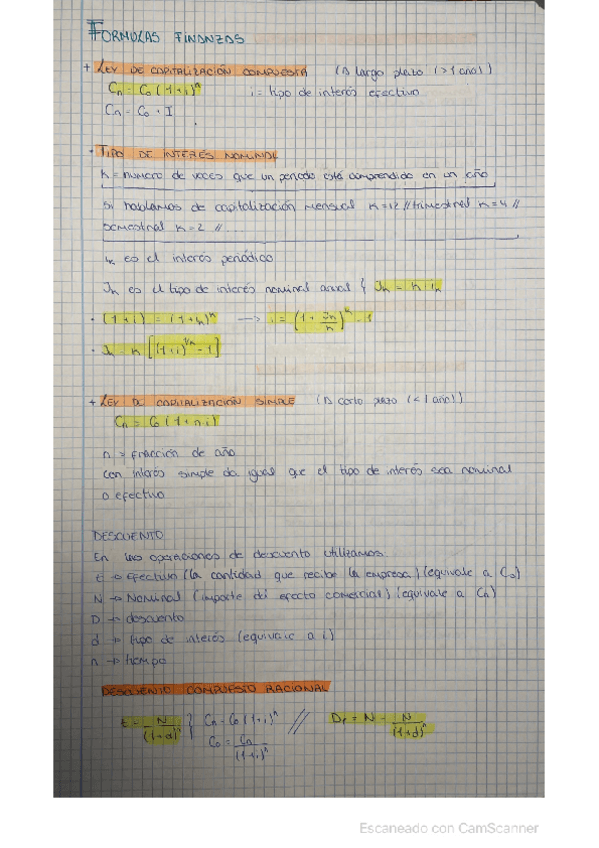 FORMULAS FINANZAS
+ LEY DE CAPITALIZACIÓN COMPUESTA (A largo plazo (>1 año))
Cn = Co (1+i)^n    i = tipo de interés efectivo
Cn = Co + I
· TIPO DE INTERÉS NOMINAL
K = número de veces que un periodo está comprendido en un año
Si hablamos de capitalización mensual K=12 // trimestral K=4 //
Semestral K=2 // ...
ik es el interés periódico
Jk es el tipo de interés nominal anual { Jk = K · ik
· (1+i) = (1+ik)^k → i = (1 + Jk/k)^k - 1
· Jk = K [(1+i)^1/k - 1]
+ LEY DE CAPITALIZACIÓN SIMPLE (A corto plazo (<1 año))
Cn = Co (1+n·i)
n → fracción de año
Con interés simple da igual que el tipo de interés sea nominal
o efectivo
DESCUENTO
En las operaciones de descuento utilizamos
E → Efectivo (la cantidad que recibe la empresa) (equivale a Co)
N → Nominal (importe del efecto comercial) (equivale a Cn)
D → descuento
d → tipo de interés (equivale a i)
n → tiempo
DESCUENTO COMPUESTO RACIONAL
E = N/(1+d)^n } Cn = Co (1+i)^n // Dr = N - N/(1+d)^n
Co = Cn/(1+i)^n
Escaneado con CamScanner